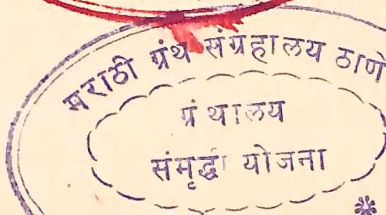 मराठी ग्रंथ संग्रहालय ठाणे
ग्रंथालय
संमृद्धी योजना